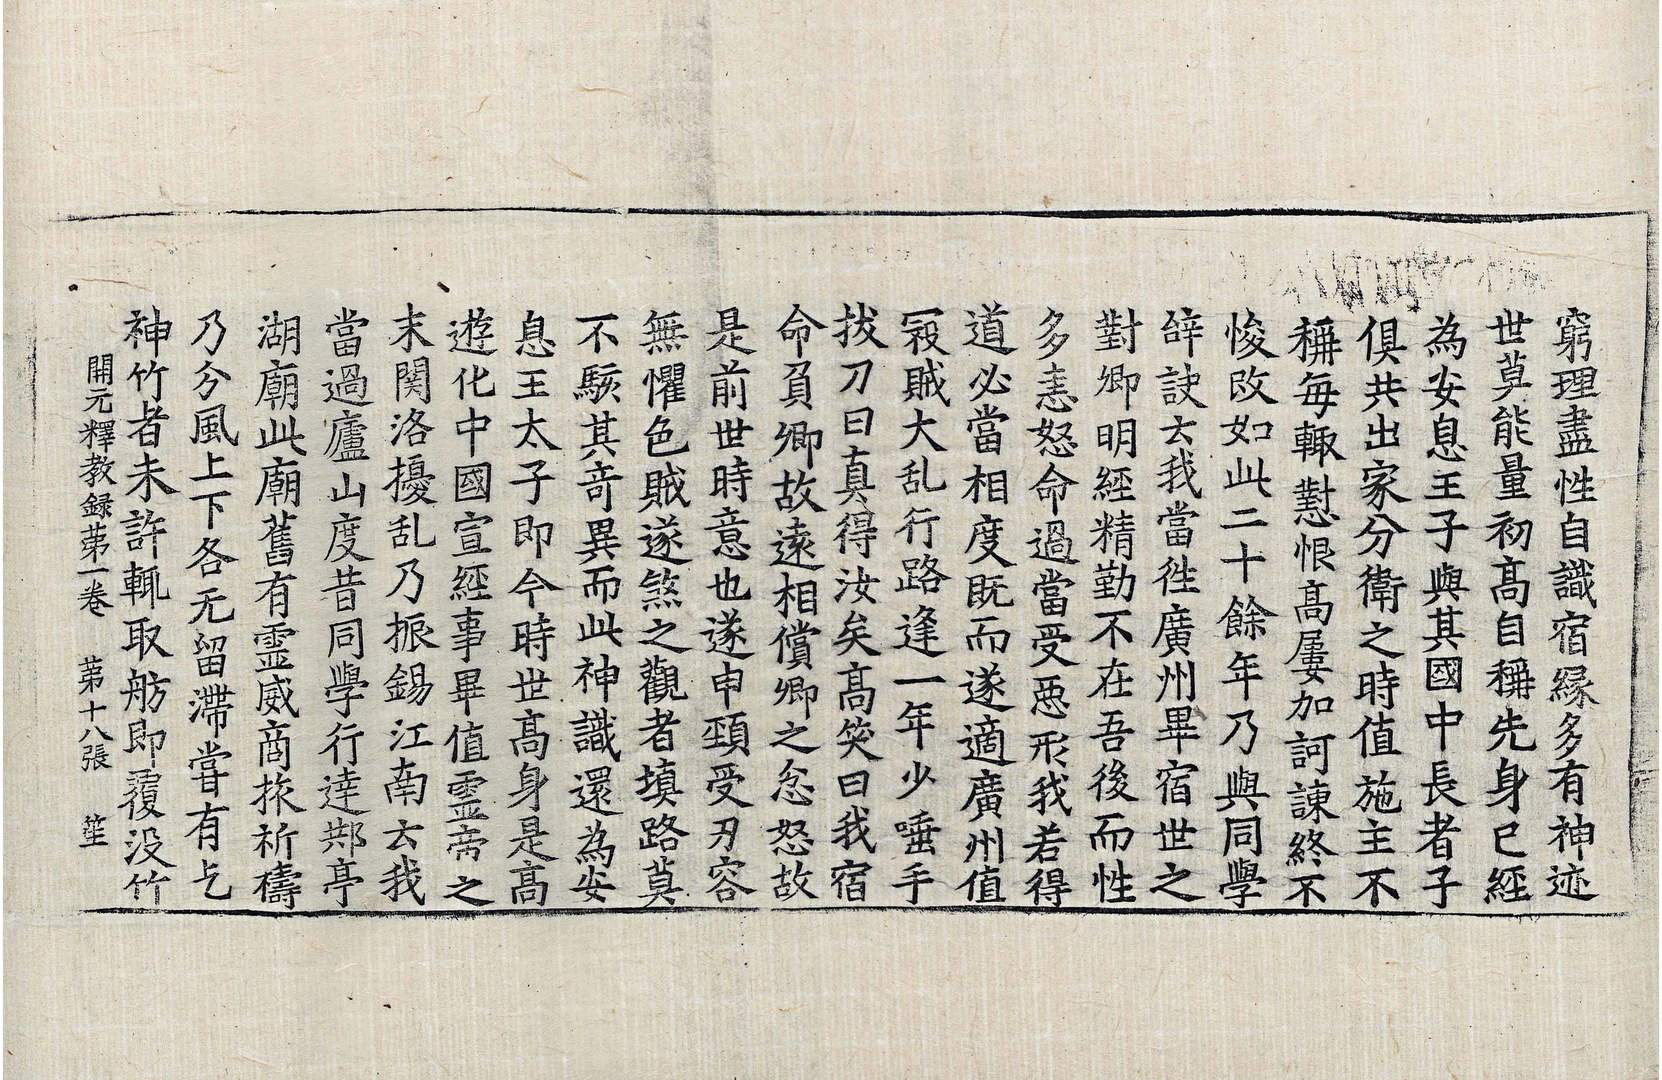 窮理盡性自識宿緣多有神迹
世莫能量初高自稱先身已經
為安息王子與其國中長者子
俱共出家分衛之時值施主不
稱每輙懟恨高屢加訶諫終不
悛改如此二十餘年乃與同學
辝訣云我當徃廣州畢宿世之
對卿明經精勤不在吾後而性
多恚怒命過當受惡形我若得
道必當相度既而遂適廣州值
冦賊大乱行路逢一年少唾手
拔刀曰真得汝矣高笑曰我宿
命負卿故遠相償卿之忿怒故
是前世時意也遂申頸受刃容
無懼色賊遂煞之觀者填路莫
不駭其竒異而此神識還為安
息王太子即今時世高身是高
遊化中國宣經事畢值靈帝之
末関洛擾乱乃振錫江南云我
當過廬山度昔同學行達䢼亭
湖廟此廟舊有靈威商旅祈禱
乃分風上下各无留滯甞有乞
神竹者未許輙取舫即覆没竹
開元釋教録苐一卷　苐十八張　笙